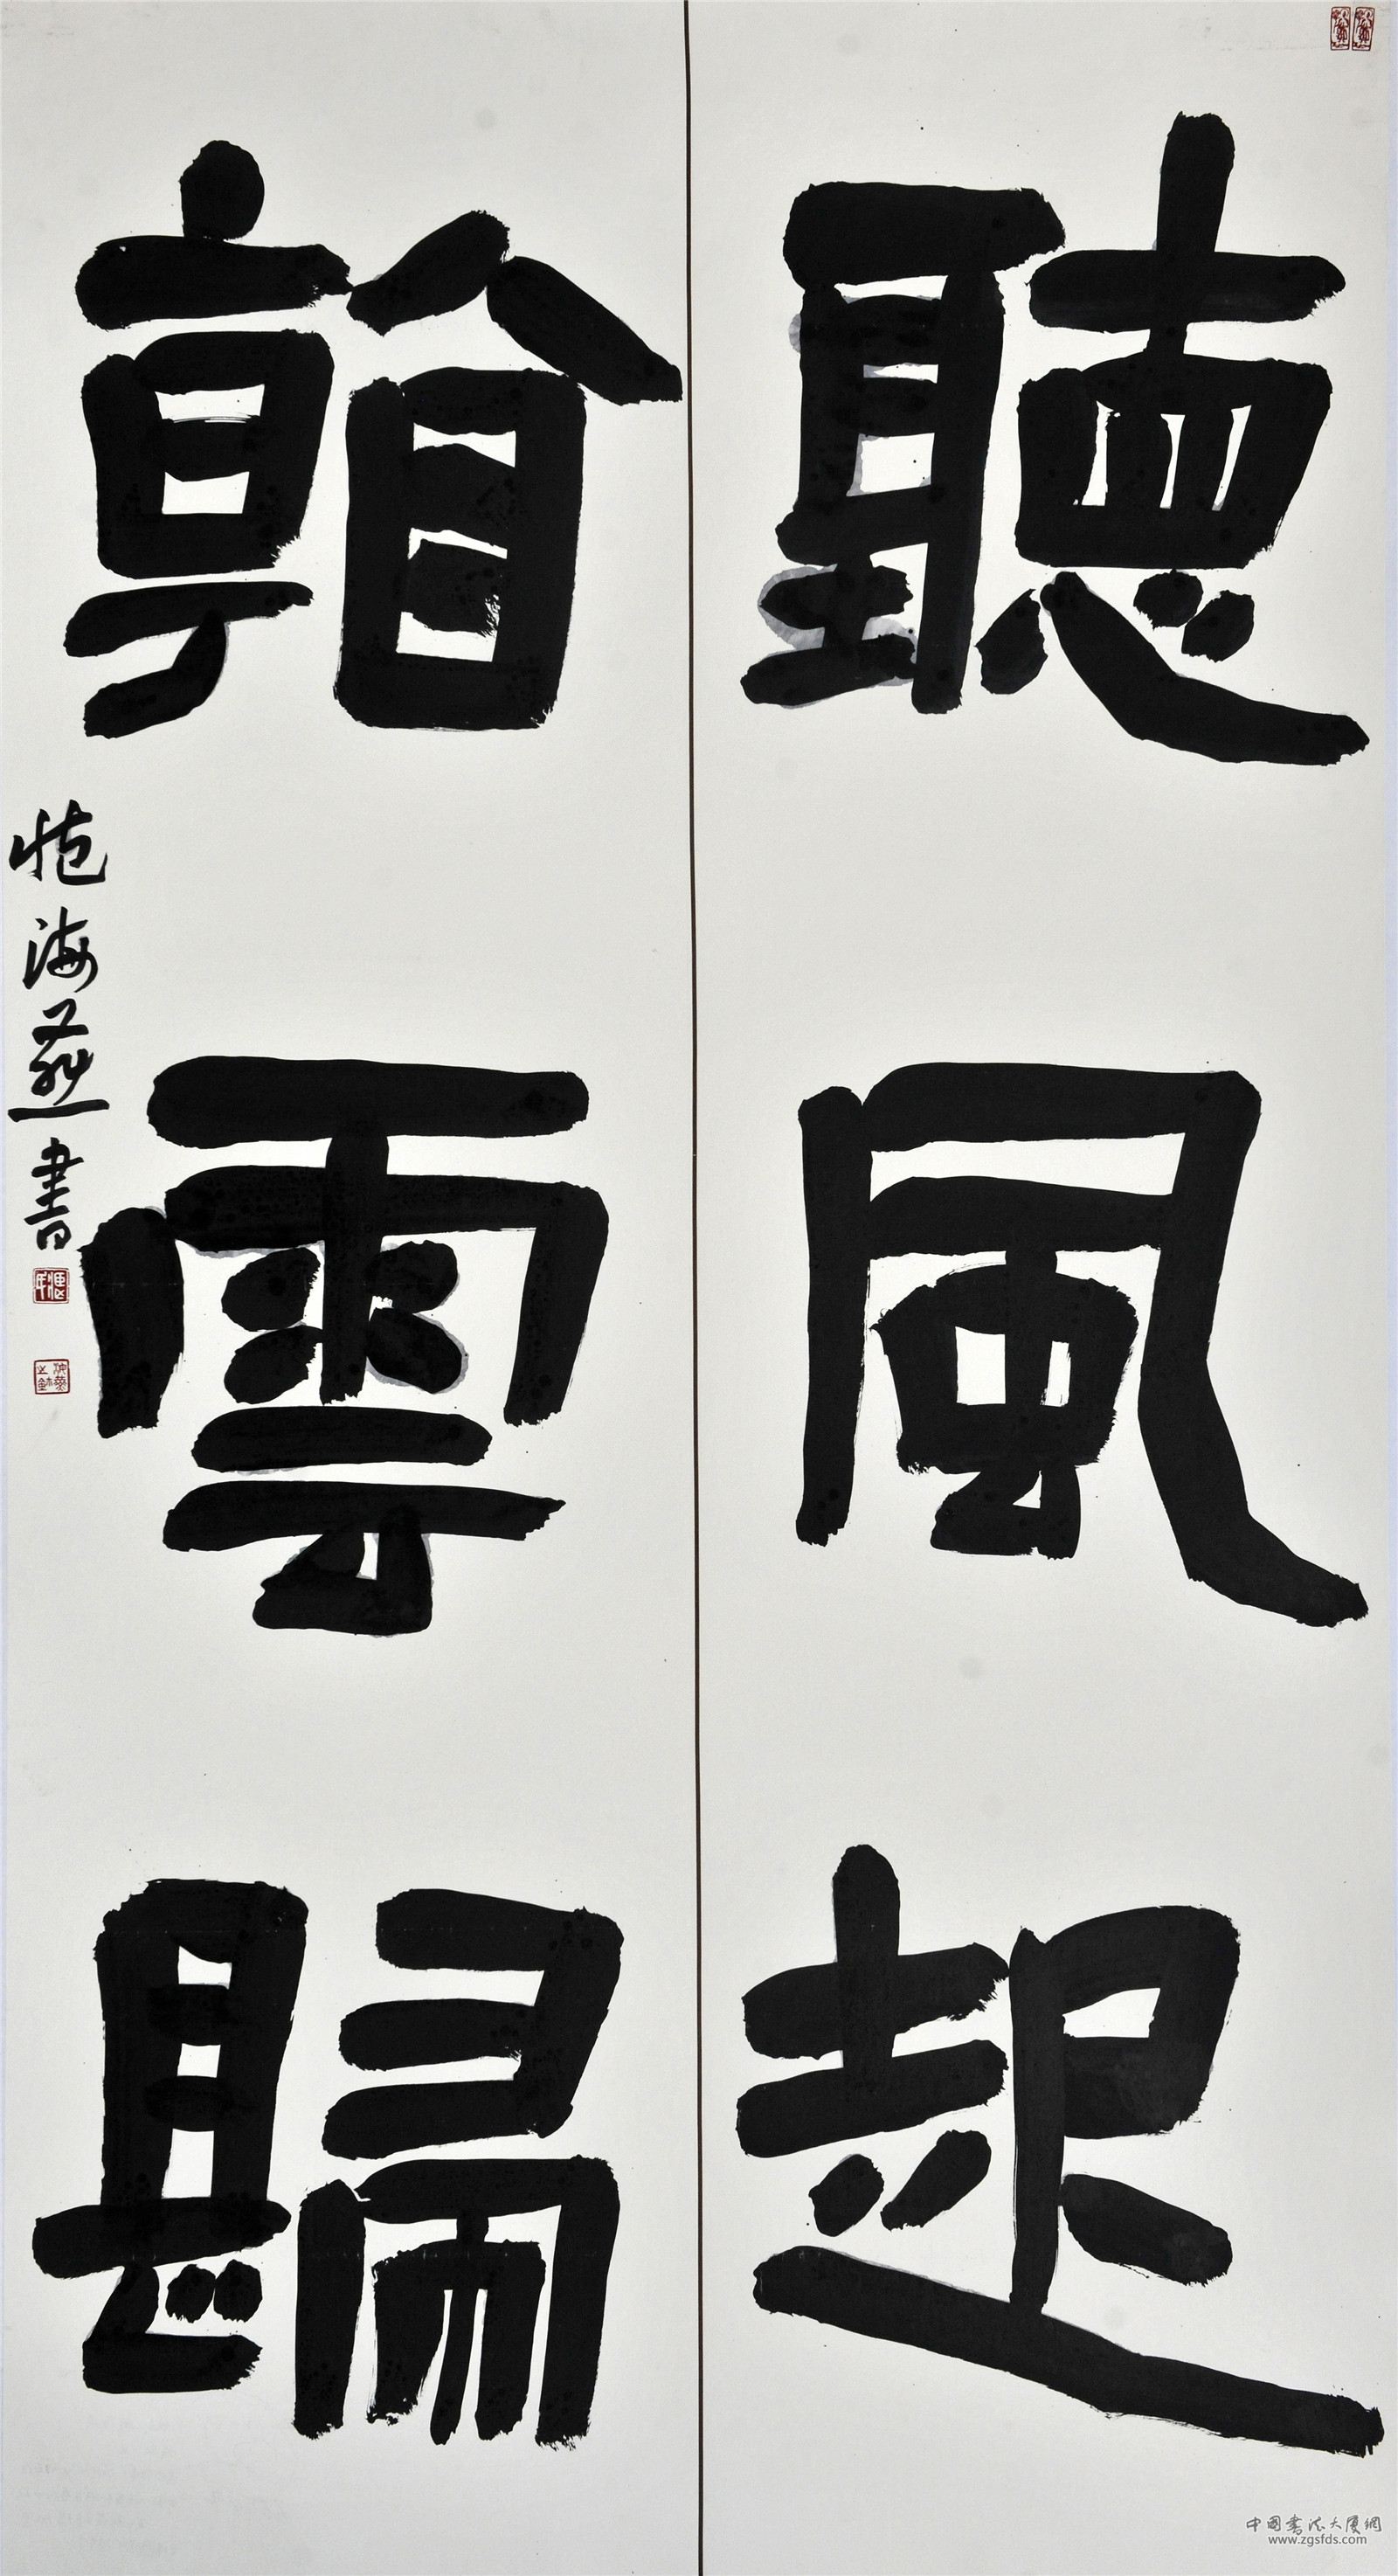 聽風起
雲歸
海燕書
中國書法大廈網
www.zgsfds.com